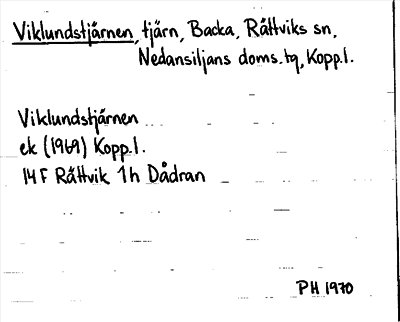 Viklundstjärnen, tjärn, Backa, Rättviks sn,
Nedansiljans doms.tg, Kopp.l.
Viklundstjärnen
ek (1969) Kopp.l.
14F Rättvik 1h Dådran
PH 1970